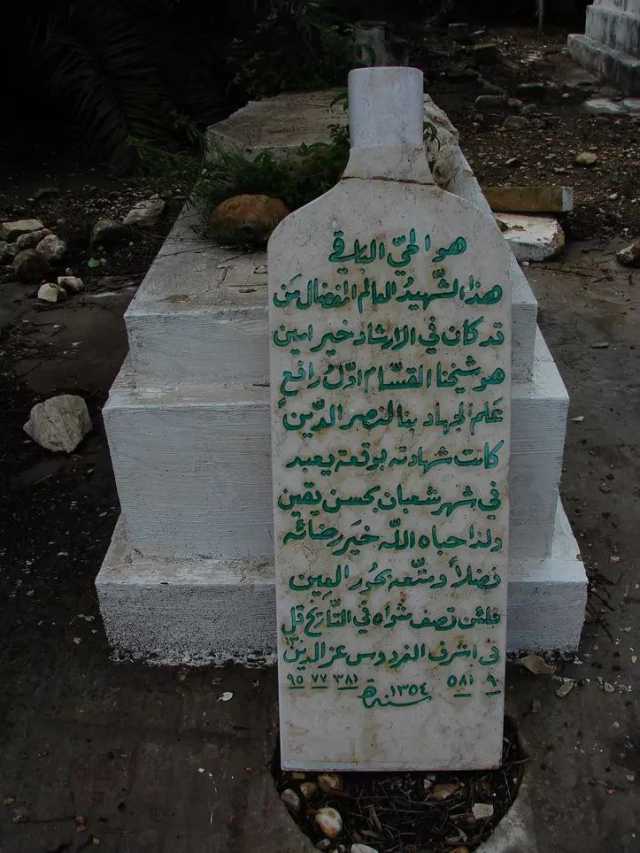 هو الحيّ الباقي
هذا الشّهيدُ العالم المفضال مَن
قد كان في الارشاد خير امين
هو شيخنا القسّام اوّلُ رافعٍ
عَلم الجهاد بنا لنصر الدّين
كانت شهادته بوقعة يعبد
في شهر شعبان بحسن يقين
ولذا حباه اللّه خَيَر رضائه
فضلاً ومتّعه بحُور العِين
فلئن تصف مثواه في التّاريخ قل
في اشرف الفردوس عز الدين
٩٠ ٥٨١ ٣٨١ ٧٧ ٩٥
سنة ١٣٥٤